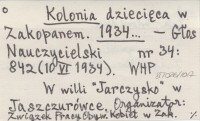 Kolonia dziecięca w
Zakopanem. 1934... – Głos
Nauczycielski nr 34:
842 (10 VI 1934). WHP
W willi "Tarczysko" w
Jaszczurówce. Organizator:
Związek Pracy Obyw. Kobiet w Zak.